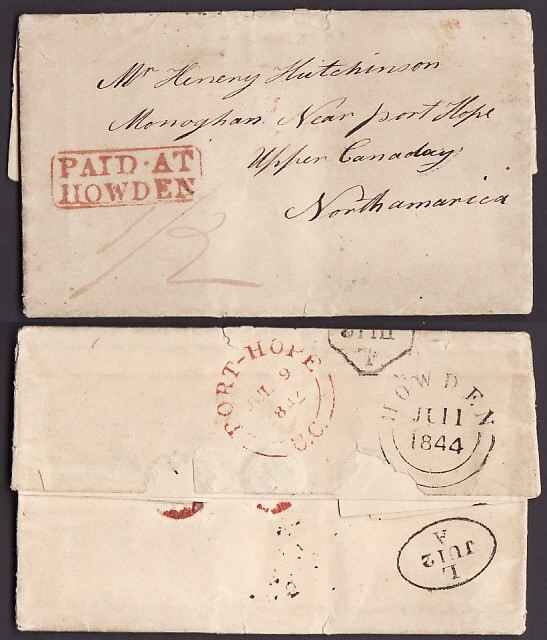 Mr Henery Hutchinson
Monoghan Near port Hope
Upper Canaday
Northamarica
PAID·AT
HOWDEN
1/2
PORT-HOPE
JUL 9
U.C.
T
HOWDEN
JU 11
1844
L
JU 12
A